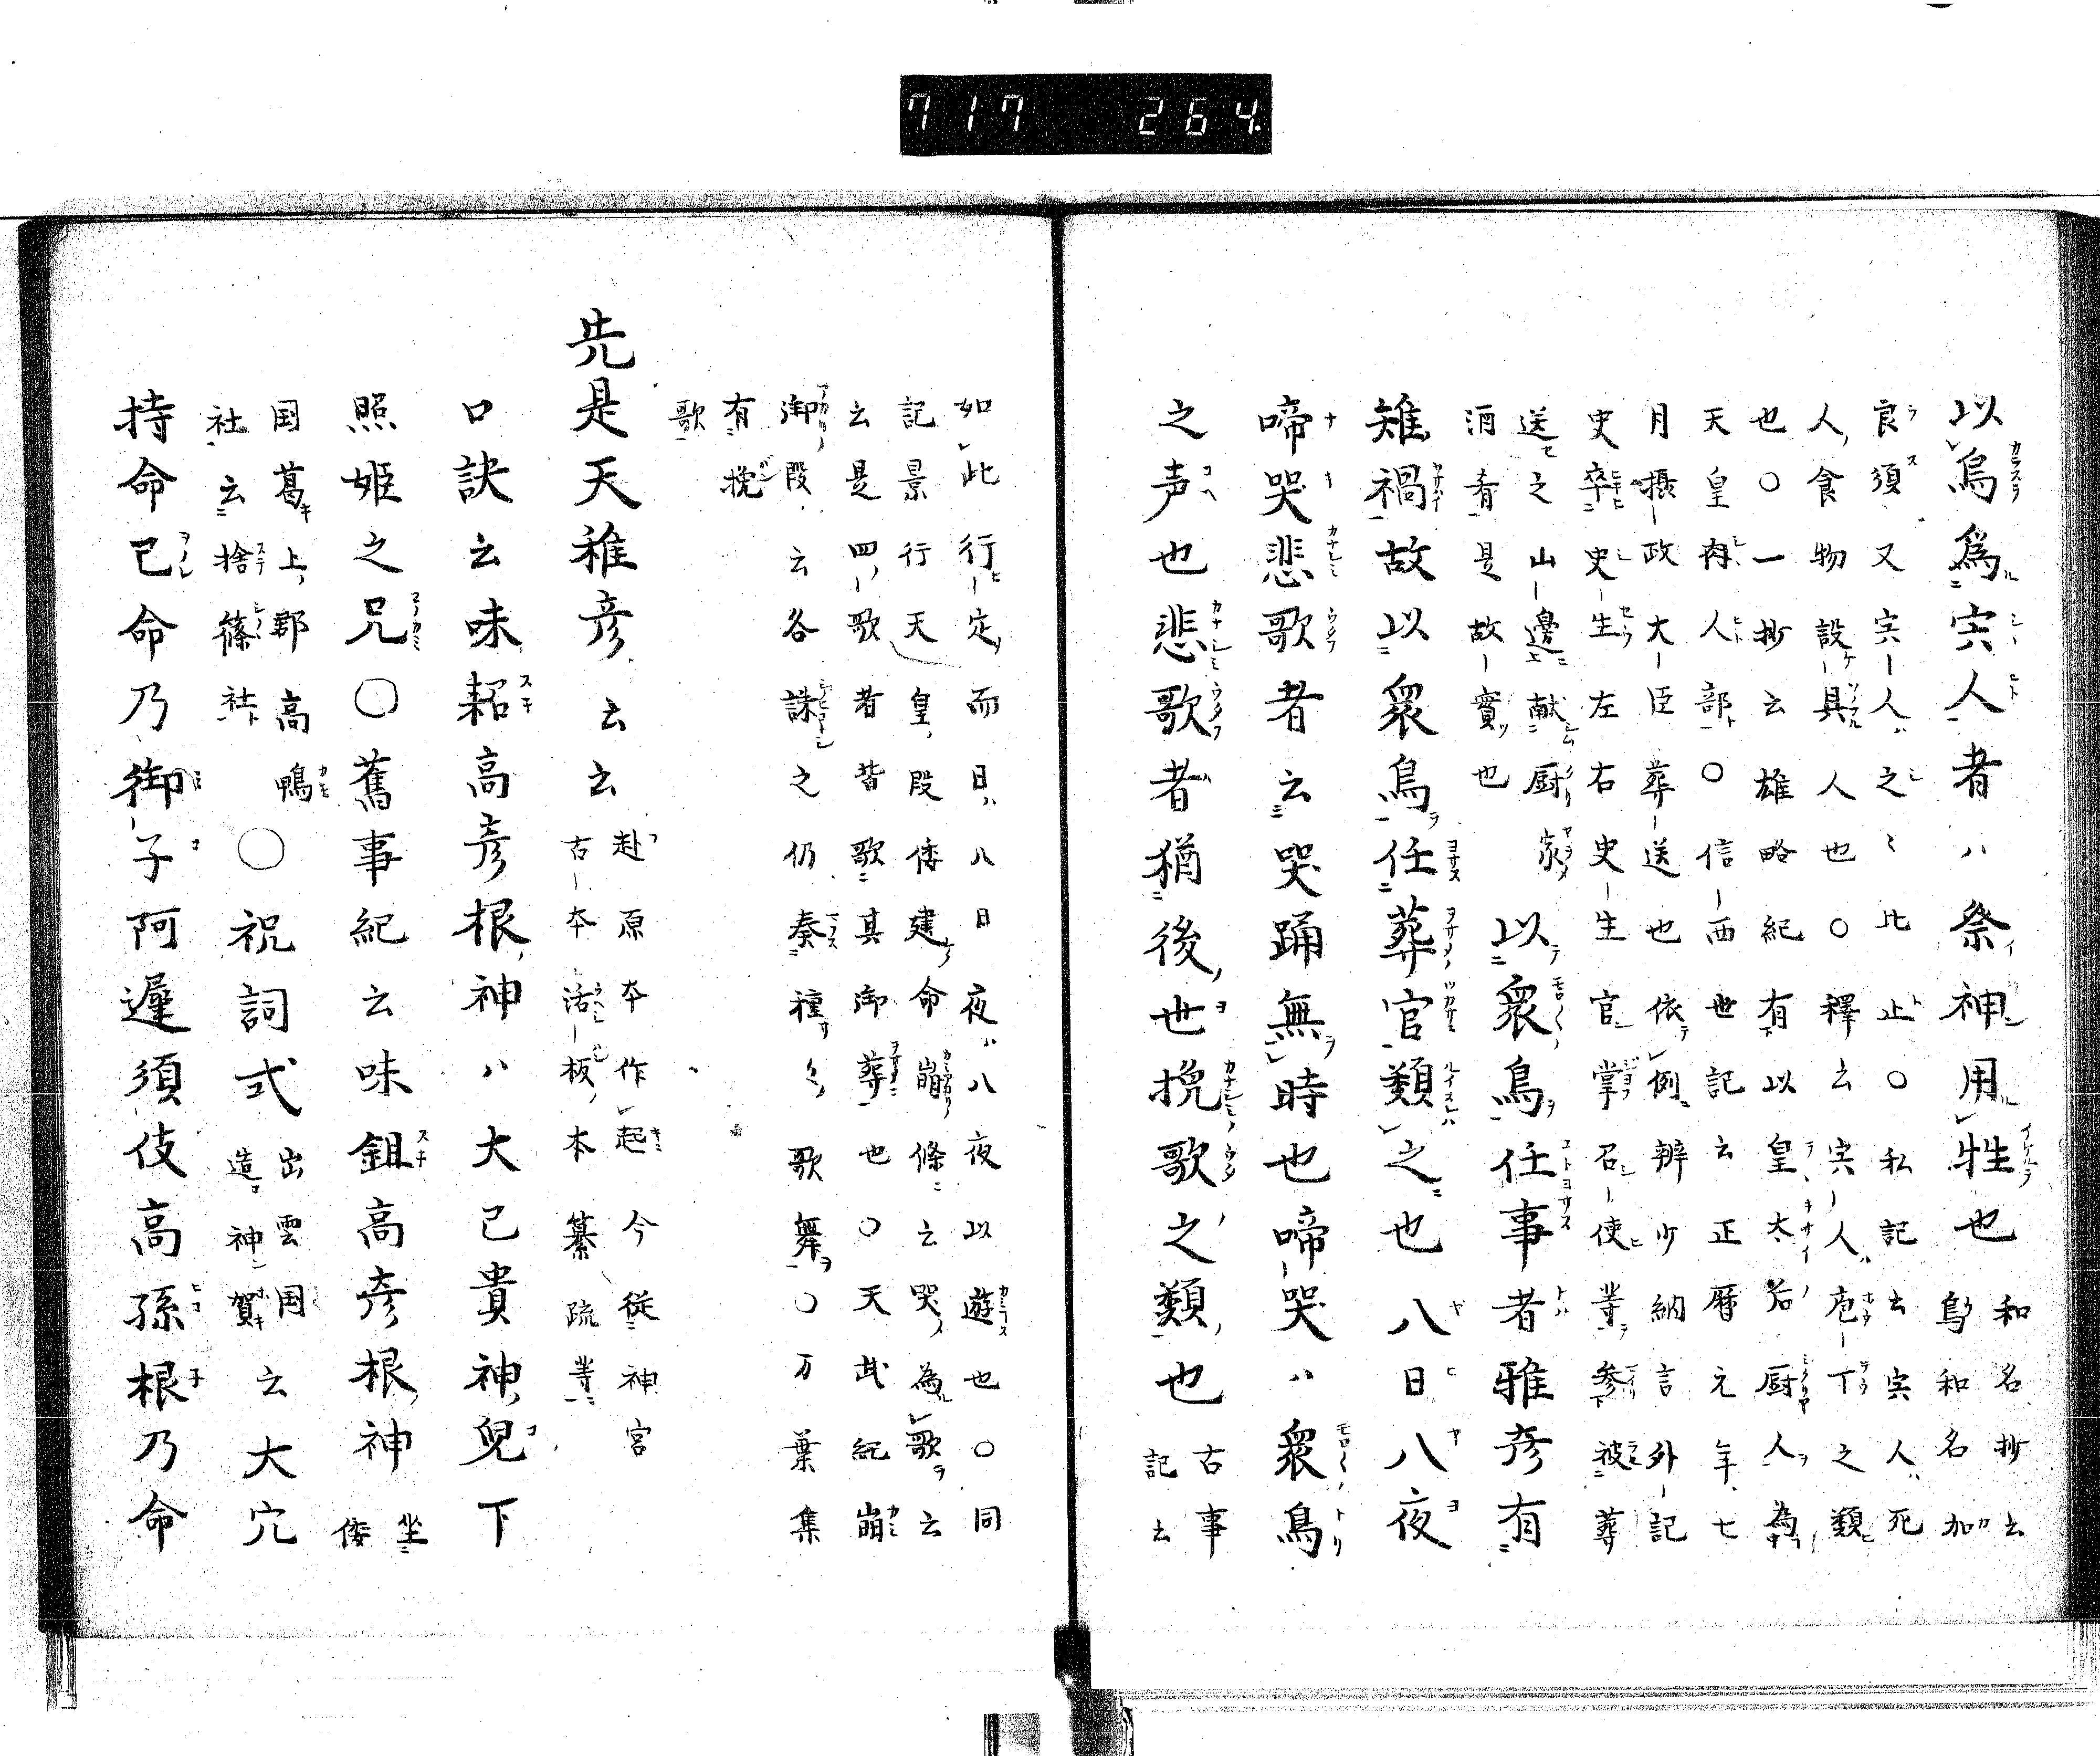 717 264
以烏爲宍人者ハ祭神用牲也 和名抄云
烏和名加
良須又宍人ハ之〻比止〇私記云宍人ハ死
人食物設具人也〇釋云宍人ハ庖丁之類
也〇一抄云雄略紀有以皇太后厨人為
天皇宍人部〇信西世記云正暦元年七
月摂政大臣葬送也依例辨少納言外記
史史生左右史生官掌召使等参被葬
送之山邊献厨家
酒肴是故實也
以衆鳥任事者雅彦有
雉禍故以衆鳥任葬官類之也 八日八夜
啼哭悲歌者云哭踊無時也啼哭ハ衆鳥
之声也悲歌者猶後世挽歌之類也 古事
記云
如此行定而日ハ八日夜ハ八夜以遊也〇同
記景行天皇段倭建命崩條云哭為歌云
云是四歌者皆歌其御葬也〇天武紀崩
御段云各誄之仍奏種〻歌舞〇万葉集
有挽
歌
先是天稚彦云云 赴原本作起今従神宮
古本活板本纂疏等
口訣云味耜高彦根神ハ大己貴神兒下
照姫之兄〇舊事紀云味鉏高彦根神 坐
倭
国葛上郡高鴨
社云捨篠社
〇祝詞式 出雲国
造神賀
云大穴
持命己命乃御子阿遲須伎高孫根乃命